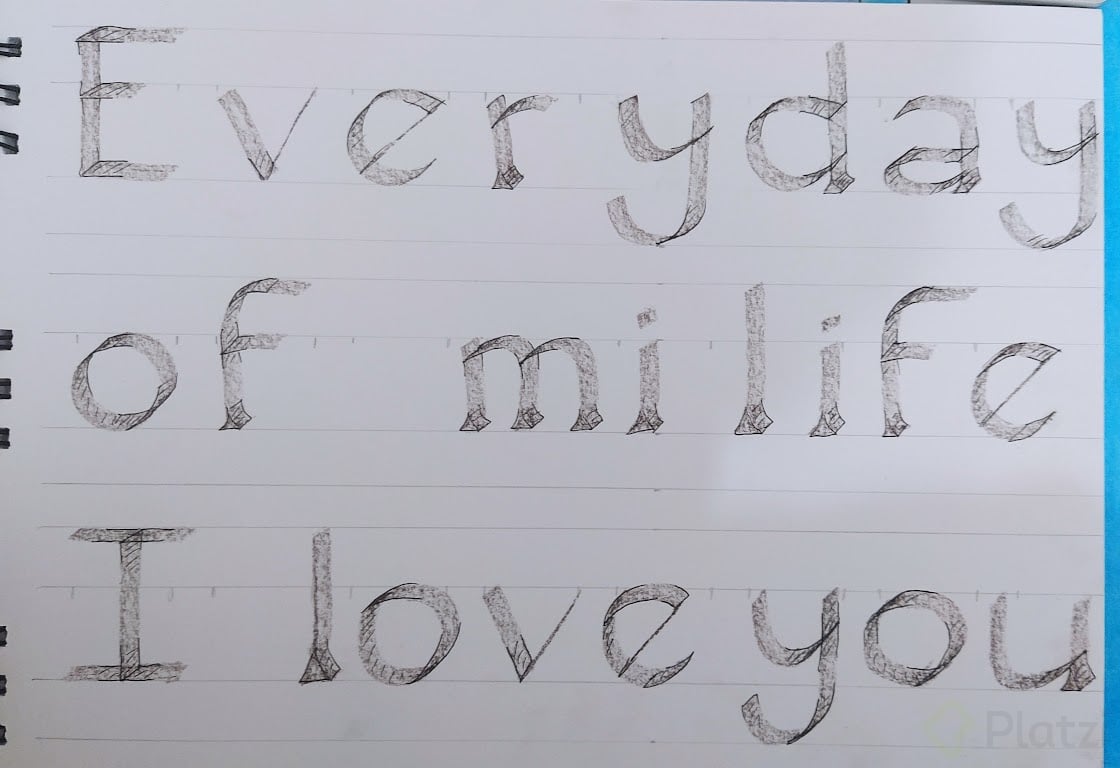 Everyday
of mi life
I love you
Platzi